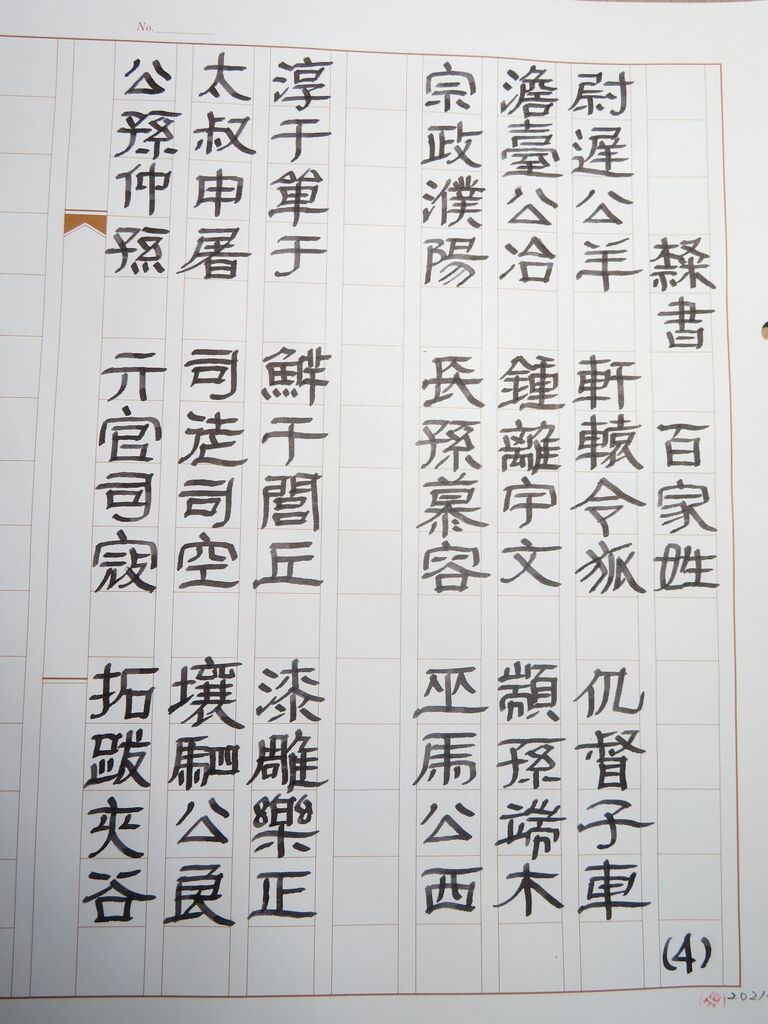 No.
隸書 百家姓 (4)
尉遲公羊 軒轅令狐 仉督子車
澹臺公冶 鍾離宇文 顓孫端木
宗政濮陽 長孫慕容 巫馬公西
淳于單于 鮮于閭丘 漆雕樂正
太叔申屠 司徒司空 壤駟公良
公孫仲孫 亓官司寇 拓跋夾谷
2021